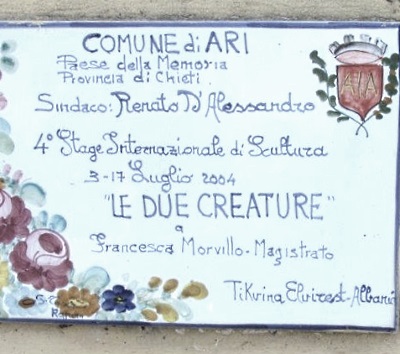 COMUNE di ARI
Paese della Memoria
Provincia di Chieti
Sindaco: Renato D'Alessandro
4° Stage Internazionale di Scultura
3-17 Luglio 2004
"LE DUE CREATURE"
a
Francesca Morvillo - Magistrato
Tikvina Elvirest - Albania